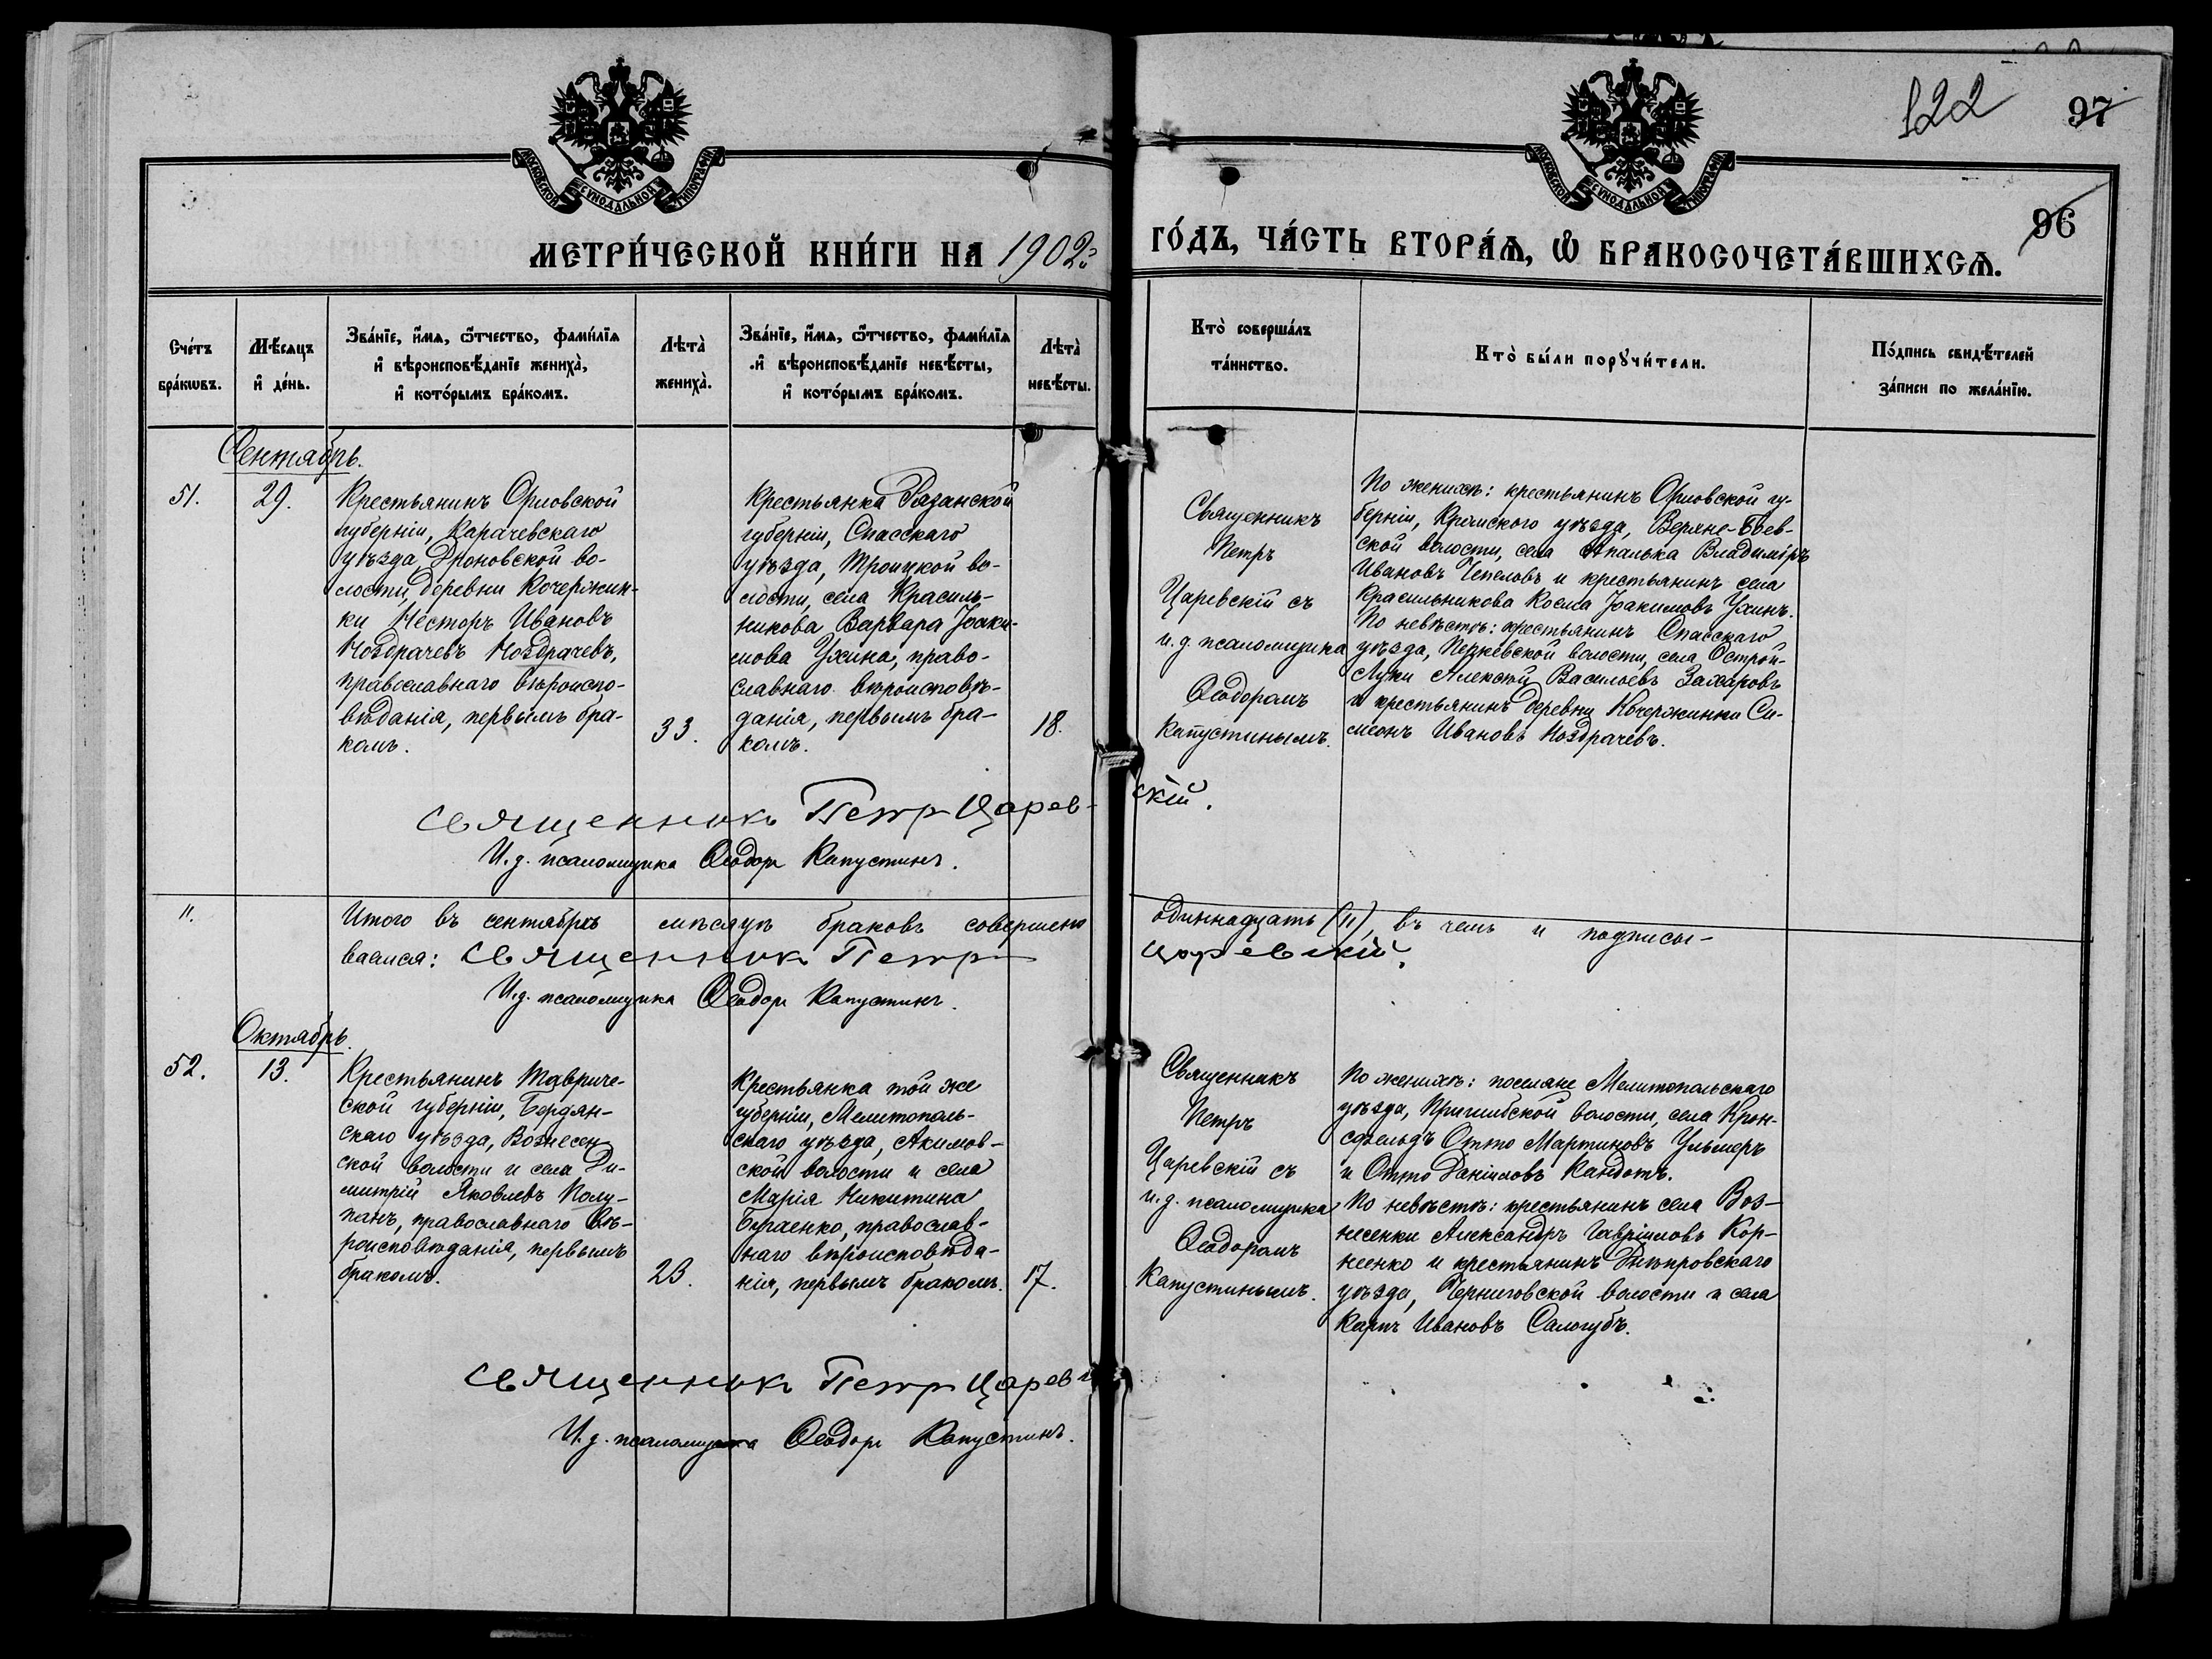 122
97
96
МОСКОВСКОЙ СѴНОДАЛЬНОЙ ТИПОГРАФІИ
МОСКОВСКОЙ СѴНОДАЛЬНОЙ ТИПОГРАФІИ
МЕТРИ́ЧЕСКОЙ КНИ́ГИ НА 1902й ГО́ДЪ, ЧА́СТЬ ВТОРА́Ѧ, Ѽ БРАКОСОЧЕТА́ВШИХСѦ.
Сче́тъ
бра́кѡвъ.
Мѣ́сѧцъ
и҆ де́нь.
Зва́нїе, и҆́мѧ, ѻ҆́тчество, фами́лїѧ
и҆ вѣроисповѣ́данїе жениха̀,
и҆ кото́рымъ бра́комъ.
Лѣта̀
жениха̀.
Зва́нїе, и҆́мѧ, ѻ҆́тчество, фами́лїѧ
и҆ вѣроисповѣ́данїе невѣ́сты,
и҆ кото́рымъ бра́комъ.
Лѣта̀
невѣ́сты.
Кто̀ соверша́лъ
та́инство.
Кто̀ бы́ли порꙋчи́тели.
По́дпись свидѣ́телей
за́писи по жела́нїю.
Сентябрь.
51.
29.
Крестьянинъ Орловской
губерніи, Карачевскаго
уѣзда, Дроновской во-
лости, деревни Кочержин-
ки Несторъ Ивановъ
Ноздрачевъ Ноздрачевъ,
православнаго вѣроиспо-
вѣданія, первымъ бра-
комъ.
33.
Крестьянка Рязанской
губерніи, Спасскаго
уѣзда, Троицкой во-
лости, села Красиль-
никова Варвара Іоаки-
мова Ухина, право-
славнаго вѣроисповѣ-
данія, первымъ бра-
комъ.
18.
Священникъ
Петръ
Царевскій съ
и. д. псаломщика
Ѳеодоромъ
Капустинымъ.
По женихѣ: крестьянинъ Орловской гу-
берніи, Кромского уѣзда, Верхне-Боев-
ской волости, села Апалька Владиміръ
Ивановъ Чепеловъ и крестьянинъ села
Красильникова Косма Іоакимовъ Ухинъ.
По невѣстѣ: крестьянинъ Спасскаго
уѣзда, волости, села Острой-
Луки Алексѣй Васильевъ Захаровъ
и крестьянинъ деревни Кочержинки Си-
меонъ Ивановъ Ноздрачевъ.
Священникъ Петръ Царевскій.
И. д. псаломщика Ѳеодоръ Капустинъ.
11.
Итого въ сентябрѣ мѣсяцѣ браковъ совершено одиннадцать (11), въ чемъ и подписы-
ваемся: Священникъ Петръ Царевскій.
И. д. псаломщика Ѳеодоръ Капустинъ.
Октябрь.
52.
13.
Крестьянинъ Тавриче-
ской губерніи, Бердян-
скаго уѣзда, Вознесен
ской волости и села Ди-
митрій Яковлевъ Полу-
панъ, православнаго вѣ-
роисповѣданія, первымъ
бракомъ.
23.
Крестьянка той же
губерніи, Мелитополь-
скаго уѣзда, Акимов-
ской волости и села
Марія Никитина
православ-
наго вѣроисповѣда-
нія, первымъ бракомъ.
17.
Священникъ
Петръ
Царевскій съ
и. д. псаломщика
Ѳеодоромъ
Капустинымъ.
По женихѣ: поселяне Мелитопольскаго
уѣзда, Пришибской волости, села Крон-
сфельдъ Отто Мартиновъ Ульмеръ
и Отто Даніиловъ Кандотъ.
По невѣстѣ: крестьянинъ села Воз-
несенки Александръ Гавріиловъ Кор-
неенко и крестьянинъ Днѣпровскаго
уѣзда, Черниговской волости и села
Карпъ Ивановъ Салогубъ.
Священникъ Петръ Царев
И. д. псаломщика Ѳеодоръ Капустинъ.